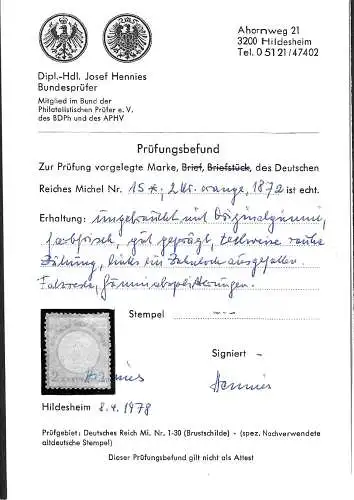 Ahornweg 21
3200 Hildesheim
Tel. 0 51 21/47402
Dipl.-Hdl. Josef Hennies
Bundesprüfer
Mitglied im Bund der
Philatelistischen Prüfer e. V.
des BDPh und des APHV
Prüfungsbefund
Zur Prüfung vorgelegte Marke, Brief, Briefstück, des Deutschen
Reiches Michel Nr. 15 *, 2 Kr. orange, 1872 ist echt.
Erhaltung: ungebraucht mit Originalgummi,
farbfrisch, gut geprägt, teilweise rauhe
Zähnung, links ein Zahnloch ausgefallen.
Falzreste, Gummiabsplitterungen.
Stempel ---
Signiert -
Hennies
Hennies
Hildesheim 8.4.1978
Prüfgebiet: Deutsches Reich Mi. Nr. 1-30 (Brustschilde) - (spez. Nachverwendete
altdeutsche Stempel)
Dieser Prüfungsbefund gilt nicht als Attest